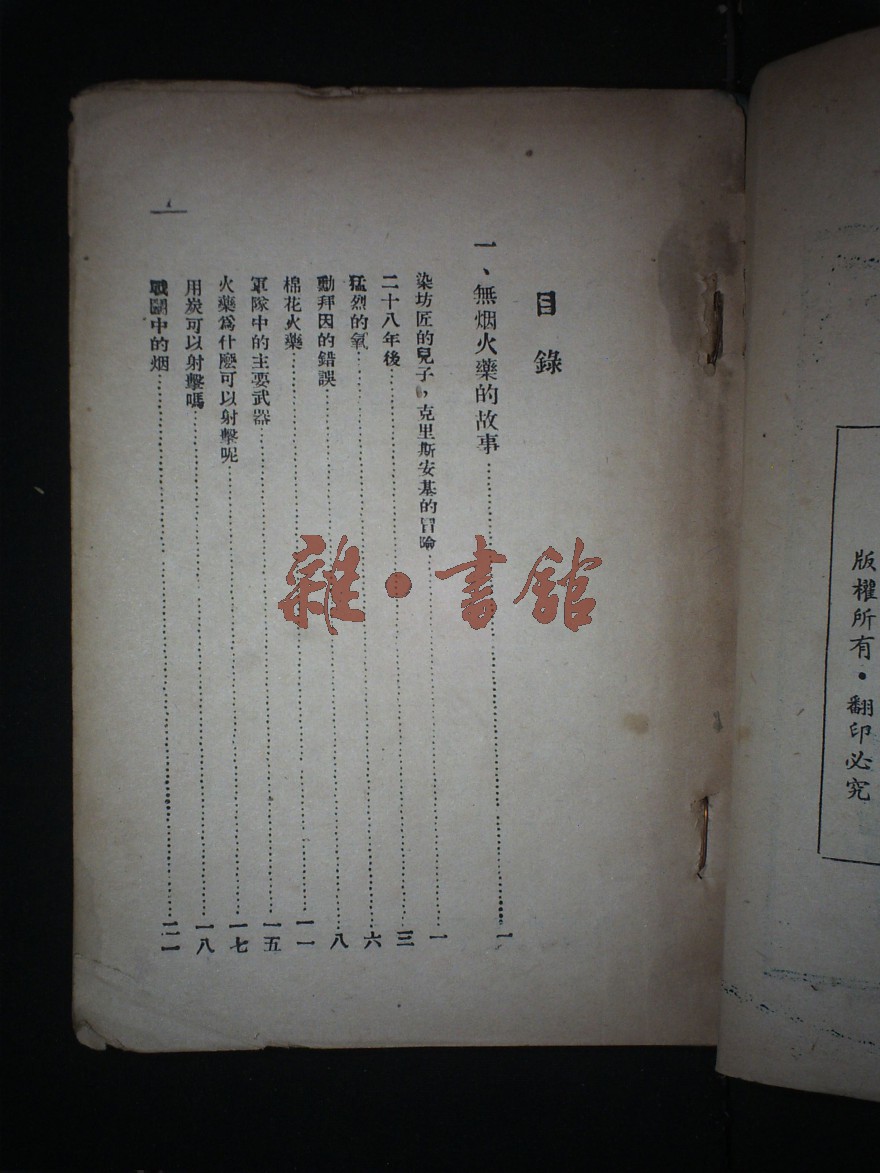 目錄
一、無烟火藥的故事……一
染坊匠的兒子，克里斯安基的冒險……一
二十八年後……三
猛烈的氧……六
勳拜因的錯誤……八
棉花火藥……一一
軍隊中的主要武器……一五
火藥爲什麽可以射擊呢……一七
用炭可以射擊嗎……一八
戰鬬中的烟……二一
版權所有·翻印必究
雜·書館